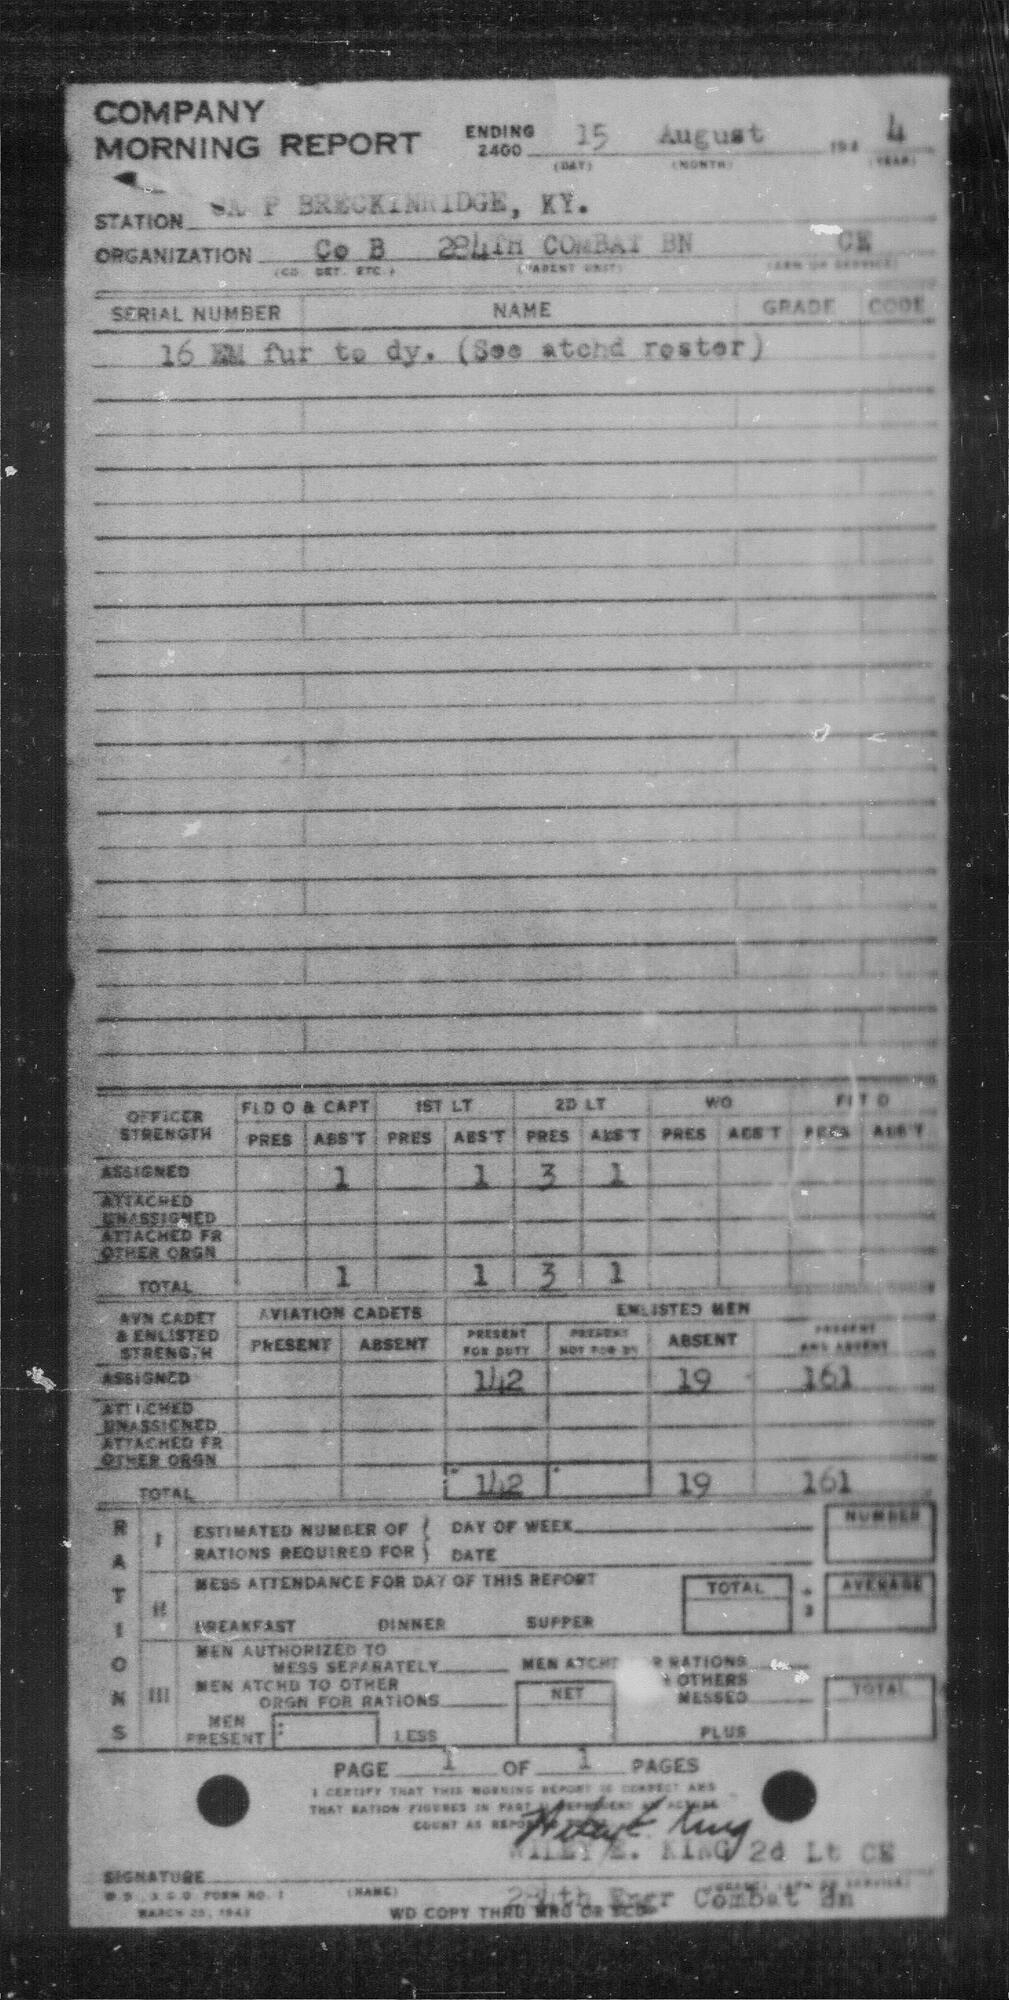 COMPANY
MORNING REPORT
ENDING 2400 15 August 194 4
(DAY) (MONTH) (YEAR)
STATION P BRECKINRIDGE, KY.
ORGANIZATION Co B 284TH COMBAT BN CE
(CO. DET. ETC.) (PARENT UNIT) (ARM OR SERVICE)
SERIAL NUMBER NAME GRADE CODE
16 EM fur to dy. (See atchd roster)
OFFICER STRENGTH FLD O & CAPT 1ST LT 2D LT WO FLT O
PRES ABS'T PRES ABS'T PRES ABS'T PRES ABS'T PRES ABS'T
ASSIGNED 1 1 3 1
ATTACHED UNASSIGNED
ATTACHED FR OTHER ORGN
TOTAL 1 1 3 1
AVN CADET & ENLISTED STRENGTH AVIATION CADETS ENLISTED MEN
PRESENT ABSENT PRESENT FOR DUTY PRESENT NOT FOR DY ABSENT PRESENT AND ABSENT
ASSIGNED 142 19 161
ATTACHED UNASSIGNED
ATTACHED FR OTHER ORGN
TOTAL 142 19 161
RATIONS
I ESTIMATED NUMBER OF RATIONS REQUIRED FOR DAY OF WEEK NUMBER
DATE
II MESS ATTENDANCE FOR DAY OF THIS REPORT TOTAL ÷ 3 AVERAGE
BREAKFAST DINNER SUPPER
III MEN AUTHORIZED TO MESS SEPARATELY MEN ATCHD RATIONS
MEN ATCHD TO OTHER ORGN FOR RATIONS NET OTHERS MESSED TOTAL
MEN PRESENT LESS PLUS
PAGE 1 OF 1 PAGES
I CERTIFY THAT THIS MORNING REPORT IS CORRECT AND
THAT RATION FIGURES IN PART
COUNT AS
Wiley E. King
WILEY E. KING 2d Lt CE
SIGNATURE
(NAME) (ARM OR SERVICE)
FORM NO. 1 284th Engr Combat Bn
MARCH 25, 1943 WD COPY THRU MRU OR